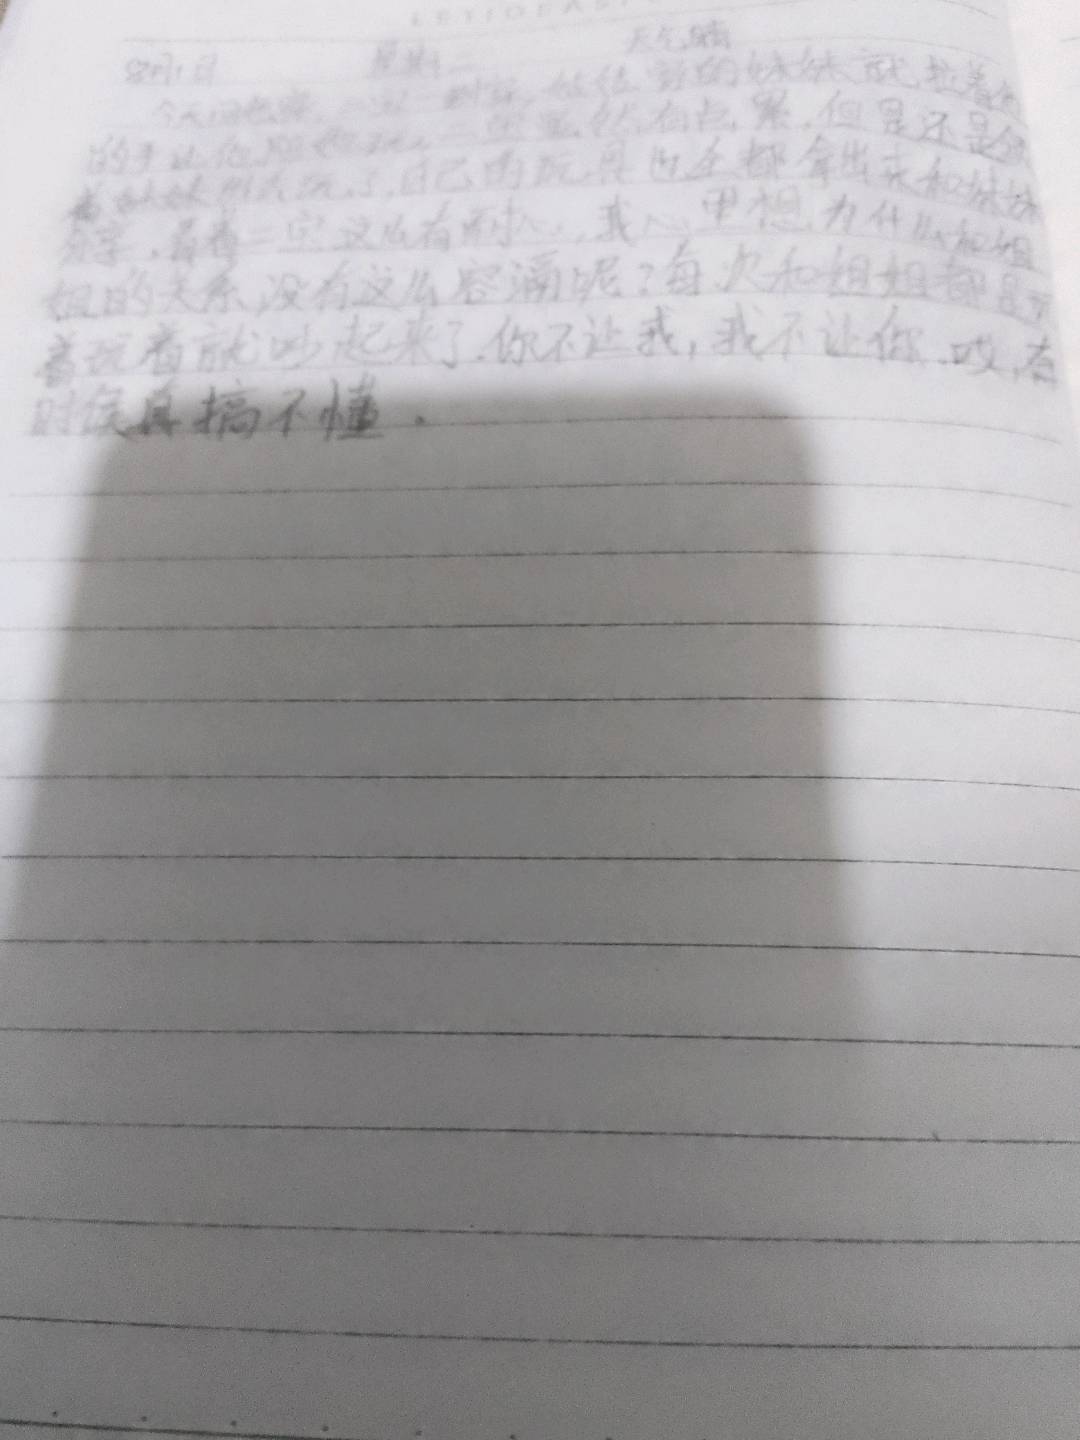 8月1日 星期二 天气晴
今天回老家,二宝一到家,妹妹就拉着他
的手让他陪她玩,二宝虽然有点累,但是还是
着妹妹 玩了,自己的玩具也全都拿出来和妹妹
分享,看着二宝这么有耐心,我心里想,为什么和姐
姐的关系没有这么容洽呢?每次和姐姐都是玩
着玩着就吵起来了,你不让我,我不让你,哎,有
时候真搞不懂.